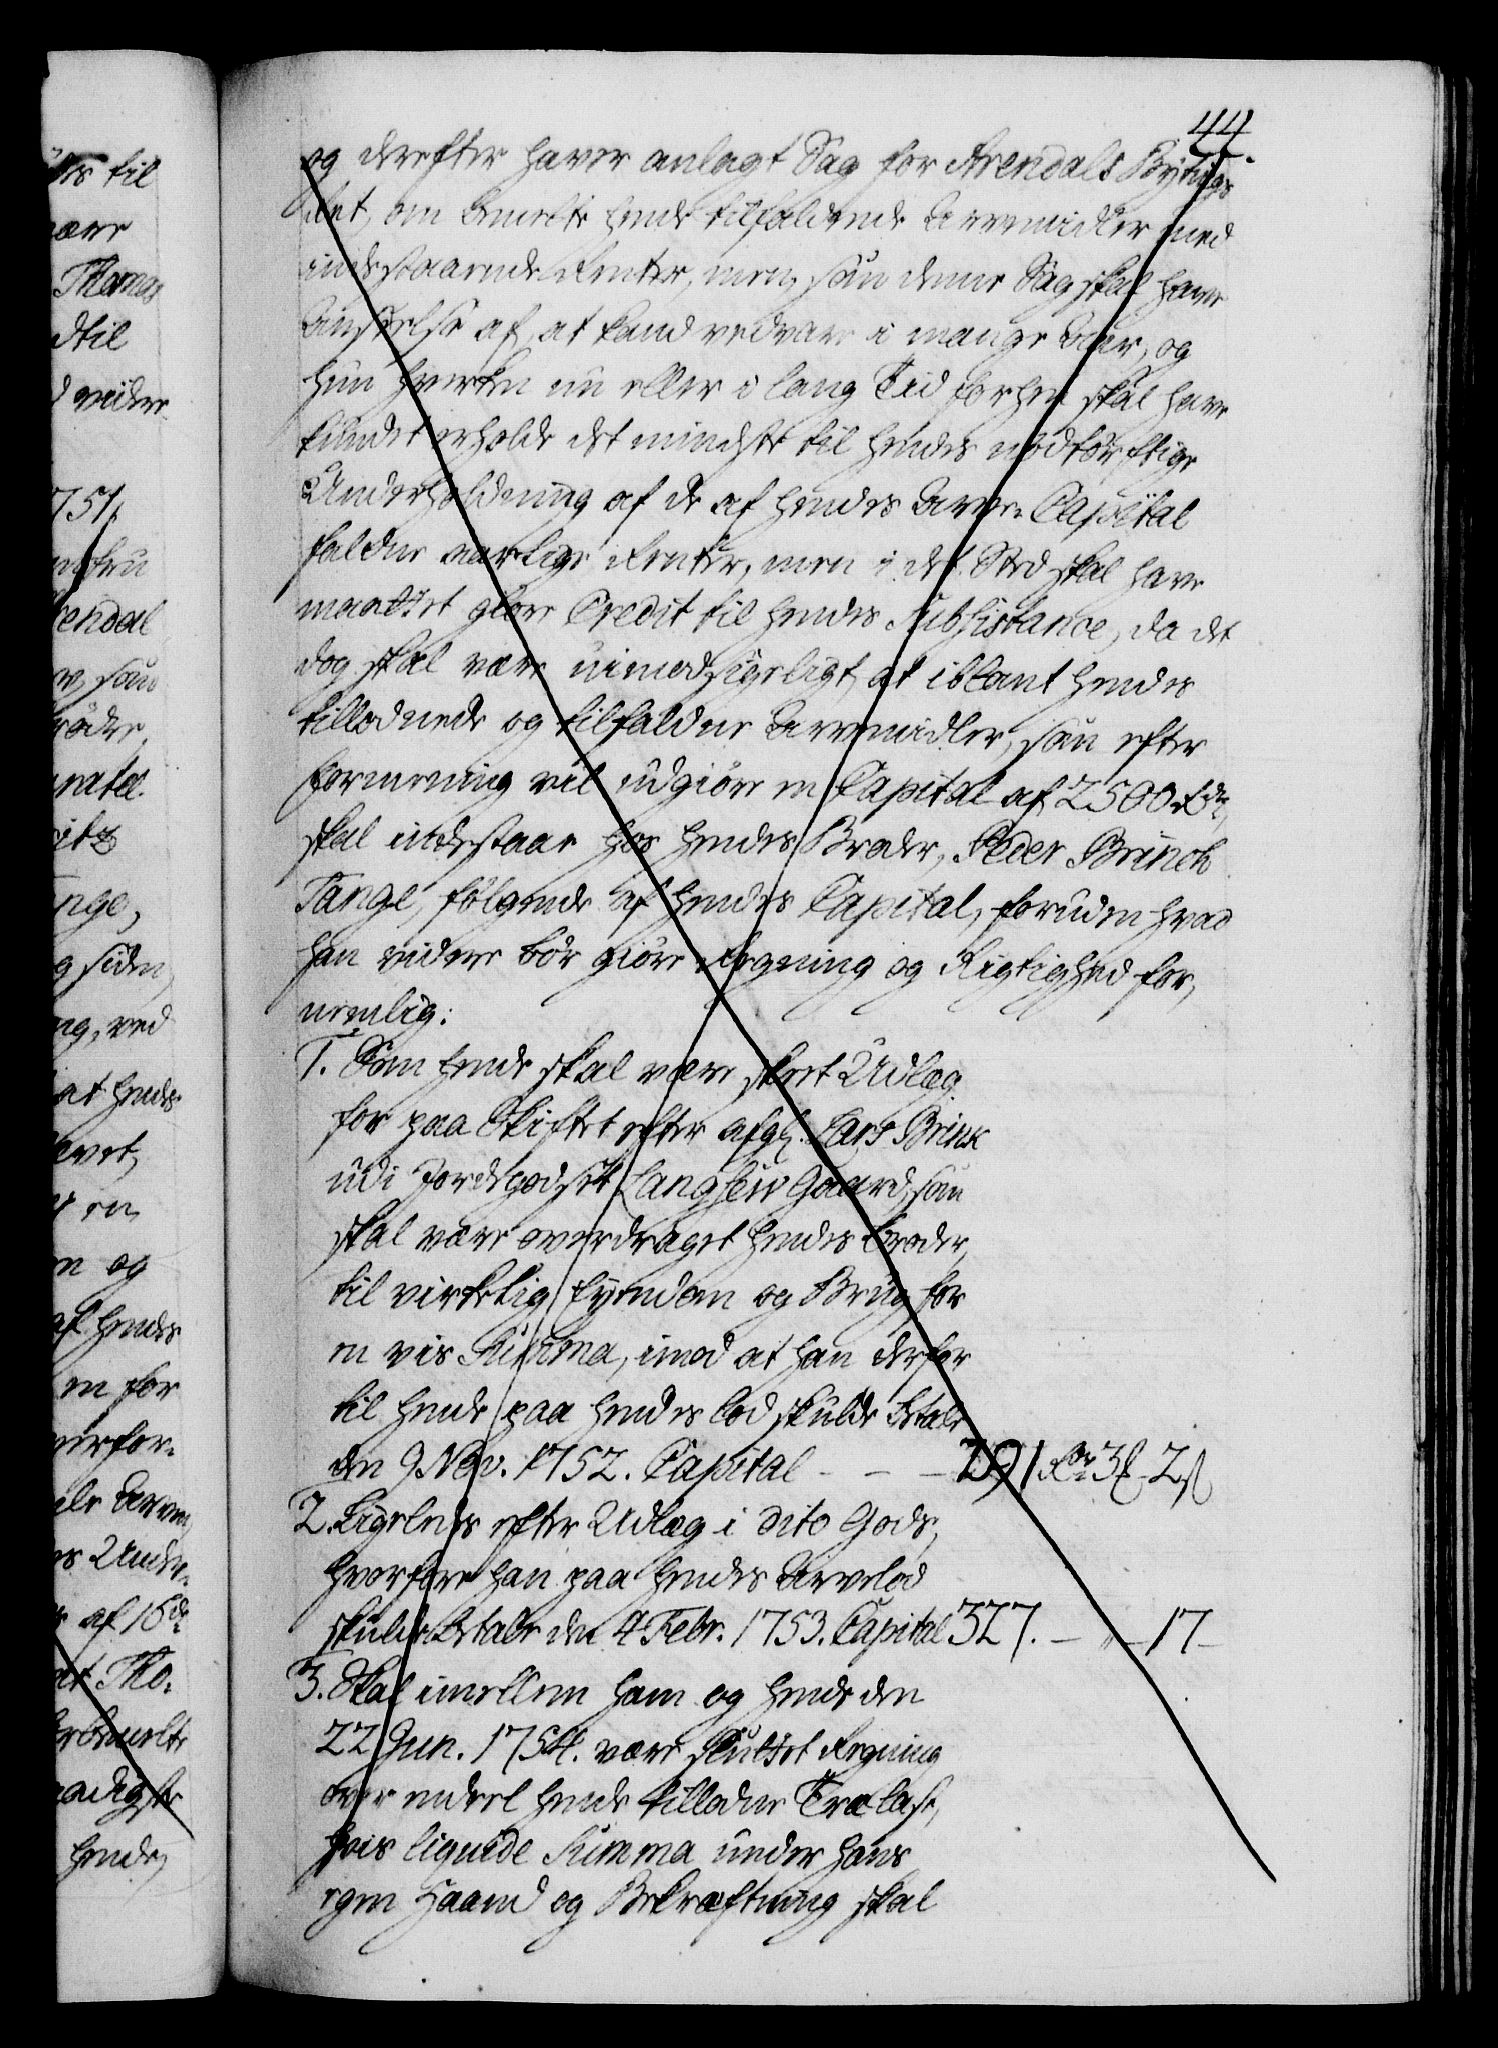 44.
og derefter haver anlagt Sag for Arendals Bytings
Ret, om bemelte hende tilfaldende Arvemidler med
indestaaende Renter, men som denne Sag skal have
Anseelse af, at kand vedvare i mange Aar, og
hun hverken nu eller i lang Tid forhen skal have
kundet erholde det mindste til hendes nødtørftige
Underholdning af de af hendes Arve-Capital
faldne aarlige Renter, men i det Sted skal have
maattet giøre Credit til hendes Subsistance, da det
dog skal være uimodsigeligt, at iblant hendes
tillodnede og tilfaldne Arvemidler, som efter
Formening vil udgiøre en Capital af 2500 Rdr,
skal indestaae hos hendes Broder, Peder Brinch
Tange, følgende af hendes Capital, foruden hvad
han videre bør giøre Regning og Rigtighed for,
nemlig:
1. Som hende skal være skeet Udlæg
for paa Skiftet efter afg. Lars Brink
udi Jordegodset Langsew Gaard, som
skal være overdraget hendes Broder,
til virkelig Eyendom og Brug for
en vis Summa, imod at han derfor
til hende paa hendes Lod skulde betale
den 9 Nov. 1752. Capital - - - 391 Rdr 3 - 2 s
2. Ligeledes efter Udlæg i dito Gods,
hvorfore han paa hendes Arvelod
skulde betale den 4 Febr. 1753. Capital 327. - " - 17 -
3. Skal imellem ham og hende den
22 Jun. 1754. være sluttet Regning
over endeel hende tillodne Trælast,
hvis liquide Summa under hans
egen Haand og Bekræftning skal
til
være
Thomas
videre
1751,
Arendal
som
siden,
ved
at hendes
en
og
af hendes
en for
Arve
af 16de
Tho-
hende,